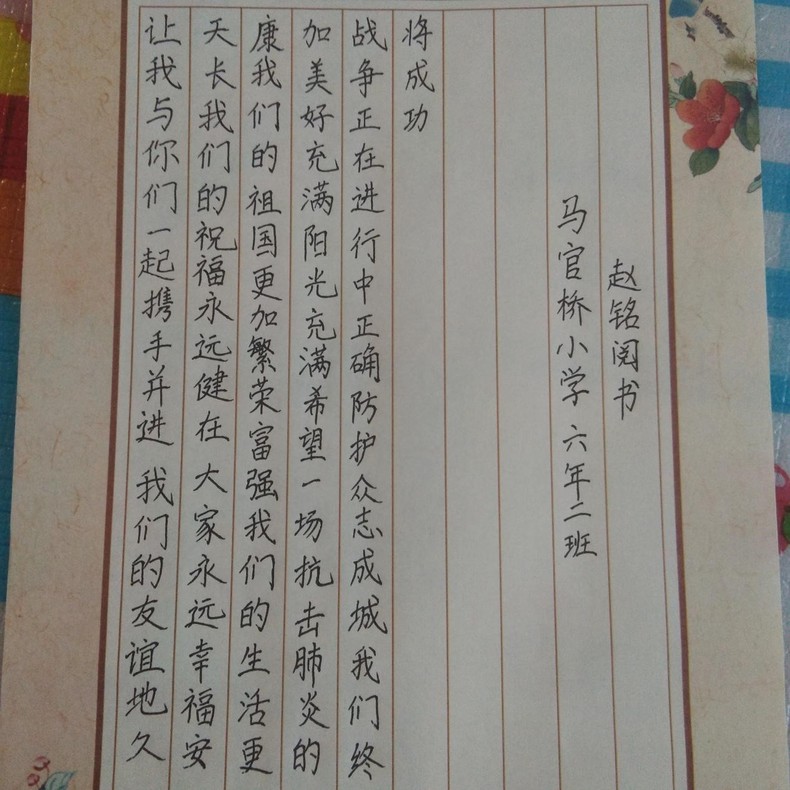 让我与你们一起携手并进 我们的友谊地久
天长我们的祝福永远健在 大家永远幸福安
康我们的祖国更加繁荣富强我们的生活更
加美好充满阳光充满希望一场抗击肺炎的
战争正在进行中正确防护众志成城我们终
将成功
马官桥小学 六年二班
赵铭阅书